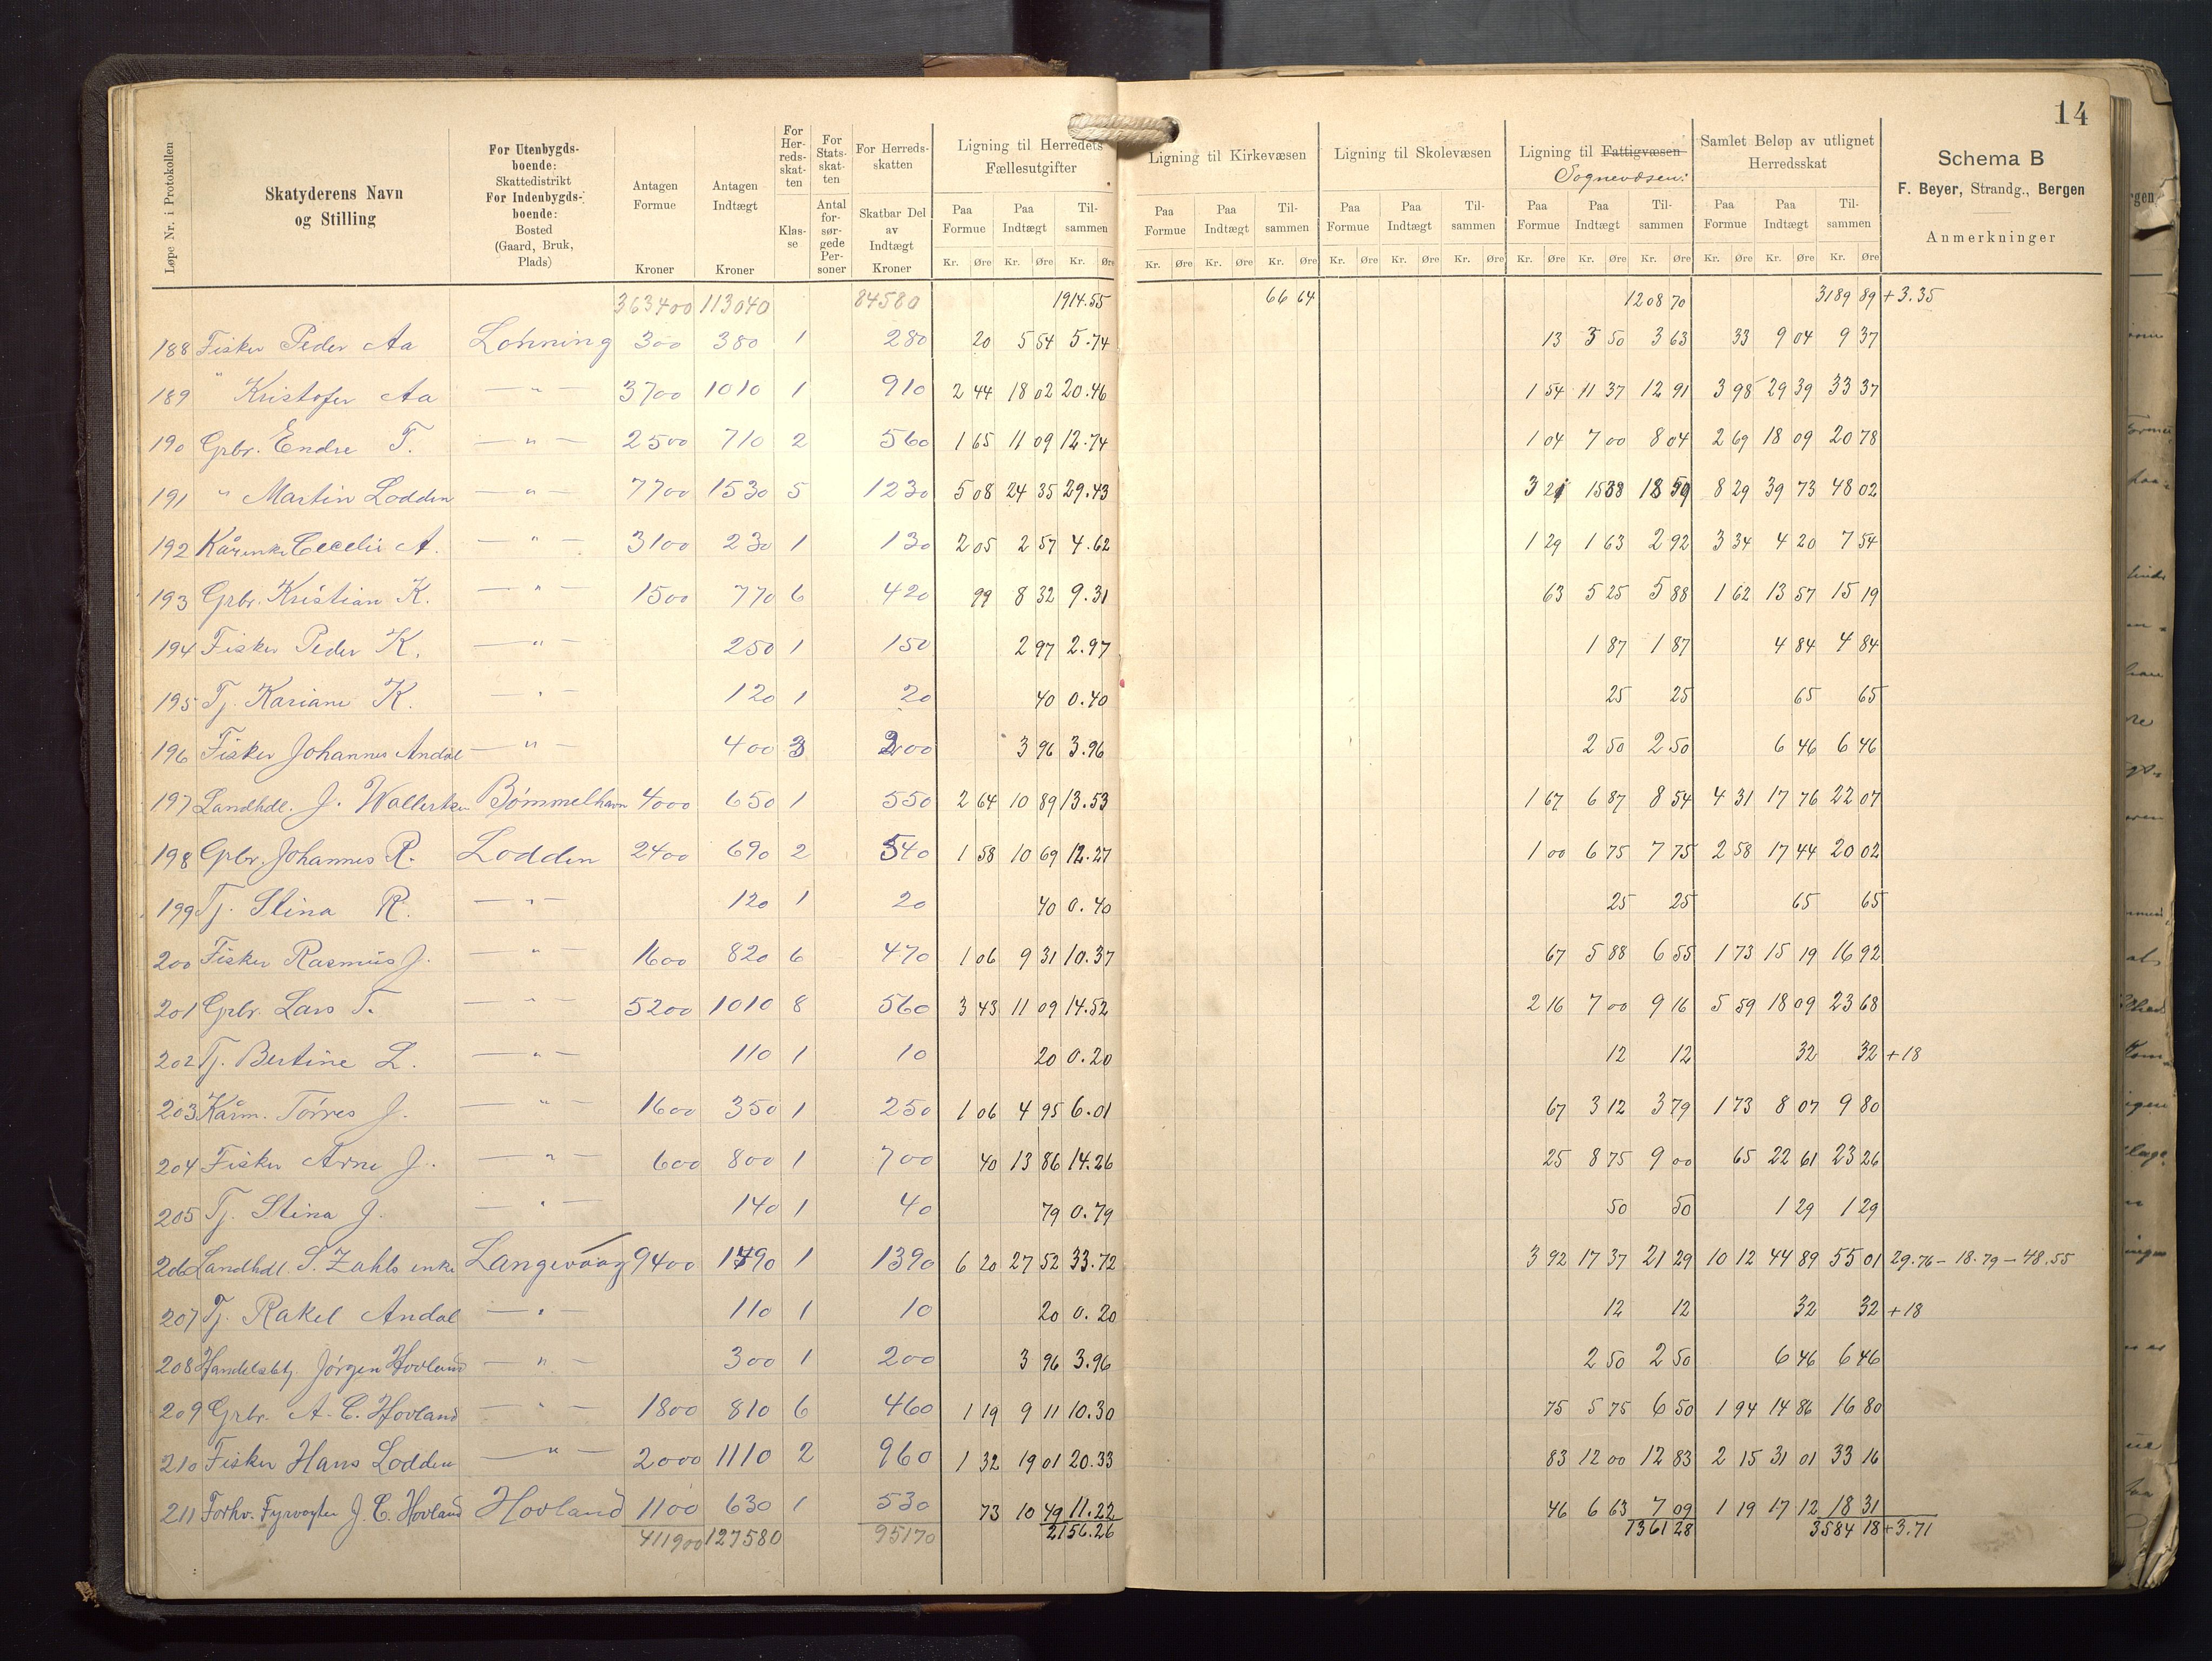 14
Løpe Nr. i Protokollen
Skatyderens Navn og Stilling
For Utenbygds-boende: Skattedistrikt For Indenbygds-boende: Bosted (Gaard, Bruk, Plads)
Antagen Formue Kroner
Antagen Indtægt Kroner
For Her-reds-skat-ten Klas-se
For Stats-skat-ten Antal for-sør-gede Per-soner
For Herreds-skatten Skatbar Del av Indtægt Kroner
Ligning til Herredets Fællesutgifter
Paa Formue Paa Indtægt Til-sammen
Kr. Øre Kr. Øre Kr. Øre
Ligning til Kirkevæsen
Paa Formue Paa Indtægt Til-sammen
Kr. Øre Kr. Øre Kr. Øre
Ligning til Skolevæsen
Paa Formue Paa Indtægt Til-sammen
Kr. Øre Kr. Øre Kr. Øre
Ligning til Fattigvæsen
Sognevæsen:
Paa Formue Paa Indtægt Til-sammen
Kr. Øre Kr. Øre Kr. Øre
Samlet Beløp av utlignet Herredsskat
Paa Formue Paa Indtægt Til-sammen
Kr. Øre Kr. Øre Kr. Øre
Schema B
F. Beyer, Strandg., Bergen
Anmerkninger
363400 113040 84580 1914.55 66 64 1208 70 3189 89 +3.35
188 Fisker Peder Aa Lønning 300 380 1 280 20 5 54 5.74 13 3 50 3 63 33 9 04 9 37
189 " Kristofer Aa — " — 3700 1010 1 910 2 44 18 02 20.46 1 54 11 37 12 91 3 98 29 39 33 37
190 Grbr. Endre T. — " — 2500 710 2 560 1 65 11 09 12.74 1 04 7 00 8 04 2 69 18 09 20 78
191 " Martin Lodden — " — 7700 1530 5 1230 5 08 24 35 29.43 3 21 15 38 18 59 8 29 39 73 48 02
192 Kårenke Cecelie A. — " — 3100 230 1 130 2 05 2 57 4.62 1 29 1 63 2 92 3 34 4 20 7 54
193 Grbr. Kristian K. — " — 1500 770 6 420 99 8 32 9.31 63 5 25 5 88 1 62 13 57 15 19
194 Fisker Peder K. — " — 250 1 150 2 97 2.97 1 87 1 87 4 84 4 84
195 Tj. Kariane K. — " — 120 1 20 40 0.40 25 25 65 65
196 Fisker Johannes Andal — " — 400 3 200 3 96 3.96 2 50 2 50 6 46 6 46
197 Landhdl. J. Bømmelhavn 4000 650 1 550 2 64 10 89 13.53 1 67 6 87 8 54 4 31 17 76 22 07
198 Grbr. Johannes R. Lodden 2400 690 2 540 1 58 10 69 12.27 1 00 6 75 7 75 2 58 17 44 20 02
199 Tj. Stina R. — " — 120 1 20 40 0.40 25 25 65 65
200 Fisker Rasmus J. — " — 1600 820 6 470 1 06 9 31 10.37 67 5 88 6 55 1 73 15 19 16 92
201 Grbr. Lars T. — " — 5200 1010 8 560 3 43 11 09 14.52 2 16 7 00 9 16 5 59 18 09 23 68
202 Tj. Bertine L. — " — 110 1 10 20 0.20 12 12 32 32 +18
203 Kårm. Tørres J. — " — 1600 350 1 250 1 06 4 95 6.01 67 3 12 3 79 1 73 8 07 9 80
204 Fisker Arne J. — " — 600 800 1 700 40 13 86 14.26 25 8 75 9 00 65 22 61 23 26
205 Tj. Stina J. — " — 140 1 40 79 0.79 50 50 1 29 1 29
206 Landhdl. S. Zahls enke Langevaag 9400 1490 1 1390 6 20 27 52 33.72 3 92 17 37 21 29 10 12 44 89 55 01 29.76 — 18.79 — 48.55
207 Tj. Rakel Andal — " — 110 1 10 20 0.20 12 12 32 32 +18
208 Handelsbtj. Jørgen Hovland — " — 300 1 200 3 96 3.96 2 50 2 50 6 46 6 46
209 Grbr. A. C. Hovland — " — 1800 810 6 460 1 19 9 11 10.30 75 5 75 6 50 1 94 14 86 16 80
210 Fisker Hans Lodden — " — 2000 1110 2 960 1 32 19 01 20.33 83 12 00 12 83 2 15 31 01 33 16
211 Forhv. Fyrvogter J. C. Hovland Hovland 1100 630 1 530 73 10 49 11.22 46 6 63 7 09 1 19 17 12 18 31
411900 127580 95170 2156.26 1361 28 3584 18 +3.71